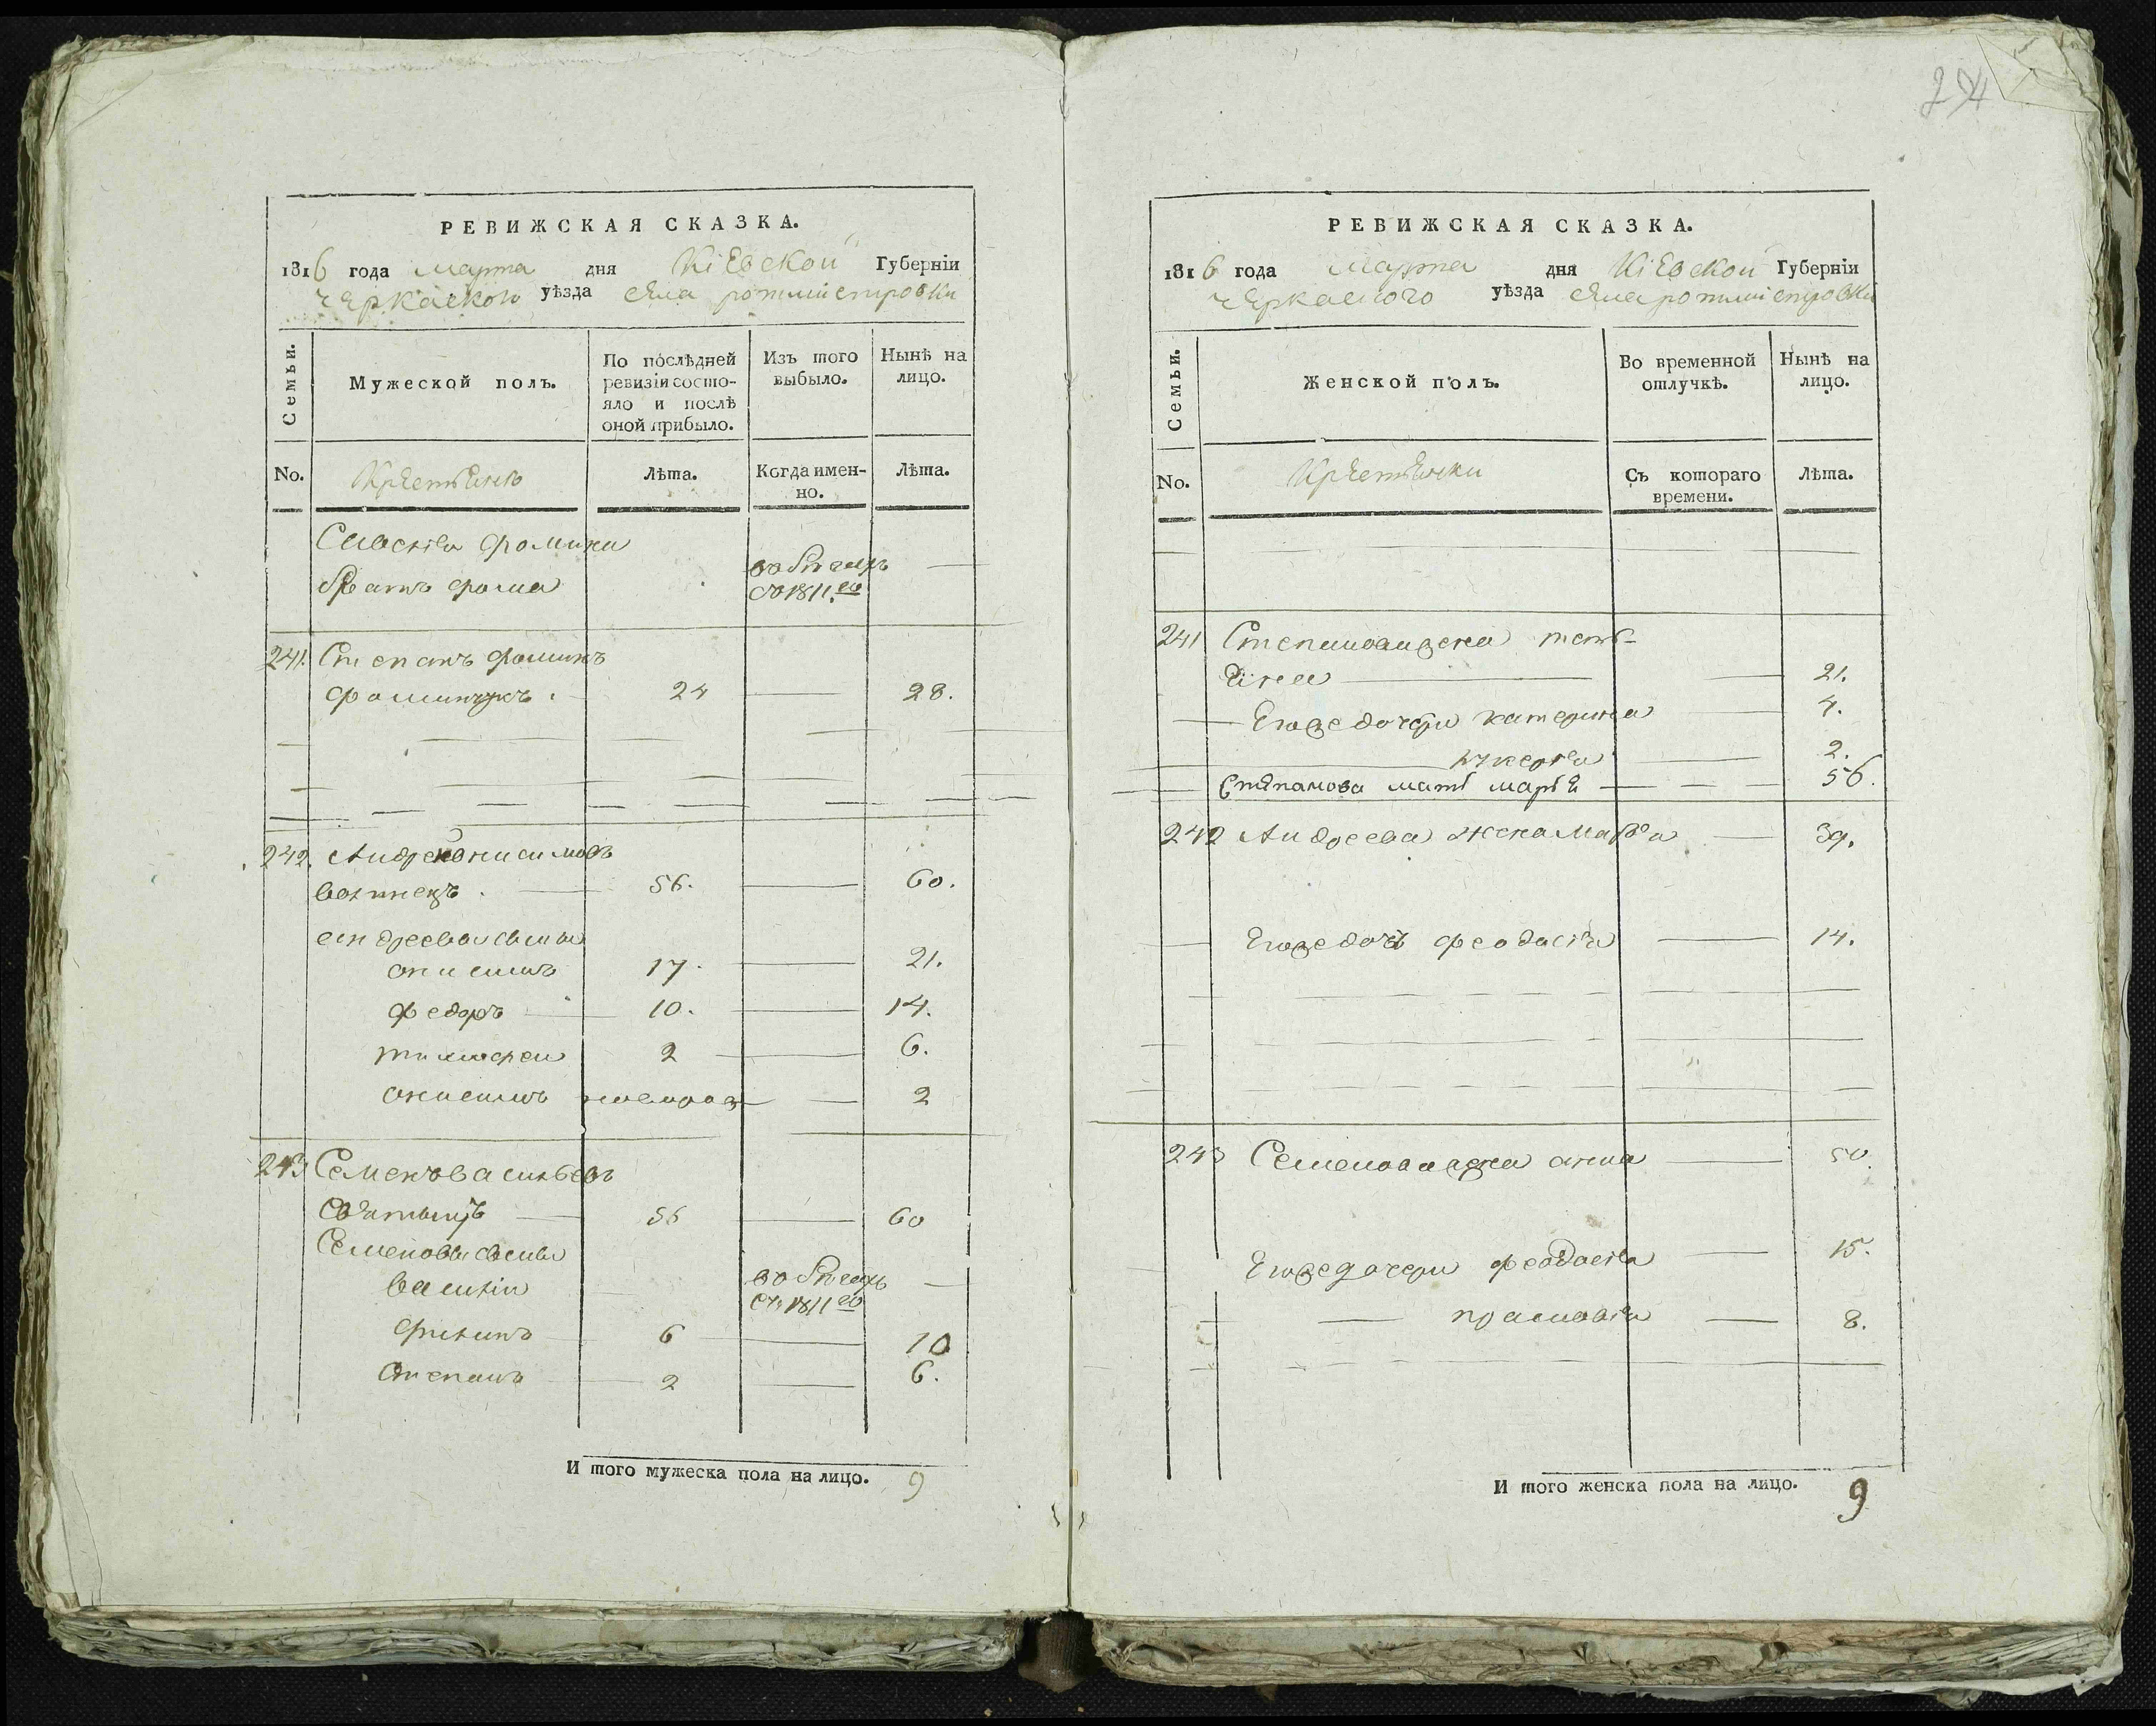 24
РЕВИЖСКАЯ СКАЗКА.
1816 года марта дня Кіевской Губерніи
черкаской уѣзда села ротмистровки
Семьи.
Мужеской полъ.
По послѣдней ревизіи состояло и послѣ оной прибыло.
Изъ того выбыло.
Нынѣ на лицо.
No.
Крестяне
Лѣта.
Когда именно.
Лѣта.
фомини
братъ фома
во бегахъ
съ 1811.го
241. Степанъ фоминъ
24 28.
242. Андрей Онисимовъ
56. 60.
андреева сыны
онисимъ 17. 21.
федоръ 10. 14.
тимофеи 2 6.
онисимъ 2
243 Семенъ васильевъ
56 60
Семеновы сыны
василіи во бегахъ
съ 1811го
филипъ 6 10
Степанъ 2 6.
И того мужеска пола на лицо. 9
РЕВИЖСКАЯ СКАЗКА.
1816 года марта дня Кіевской Губерніи
черкаского уѣзда села ротмистровки
Семьи.
Женской полъ.
Во временной отлучкѣ.
Нынѣ на лицо.
No.
Крестянки
Съ котораго времени.
Лѣта.
241 Степанова жена тать-
яна 21.
Егоже дочери катерина 4.
2.
Степанова мать марья 56.
242 Андреева жена Марфа 39.
Егоже дочь феодосия 14.
243 Семенова жена анна 50.
Егоже дочери феодосия 15.
прасковия 8.
И того женска пола на лицо. 9